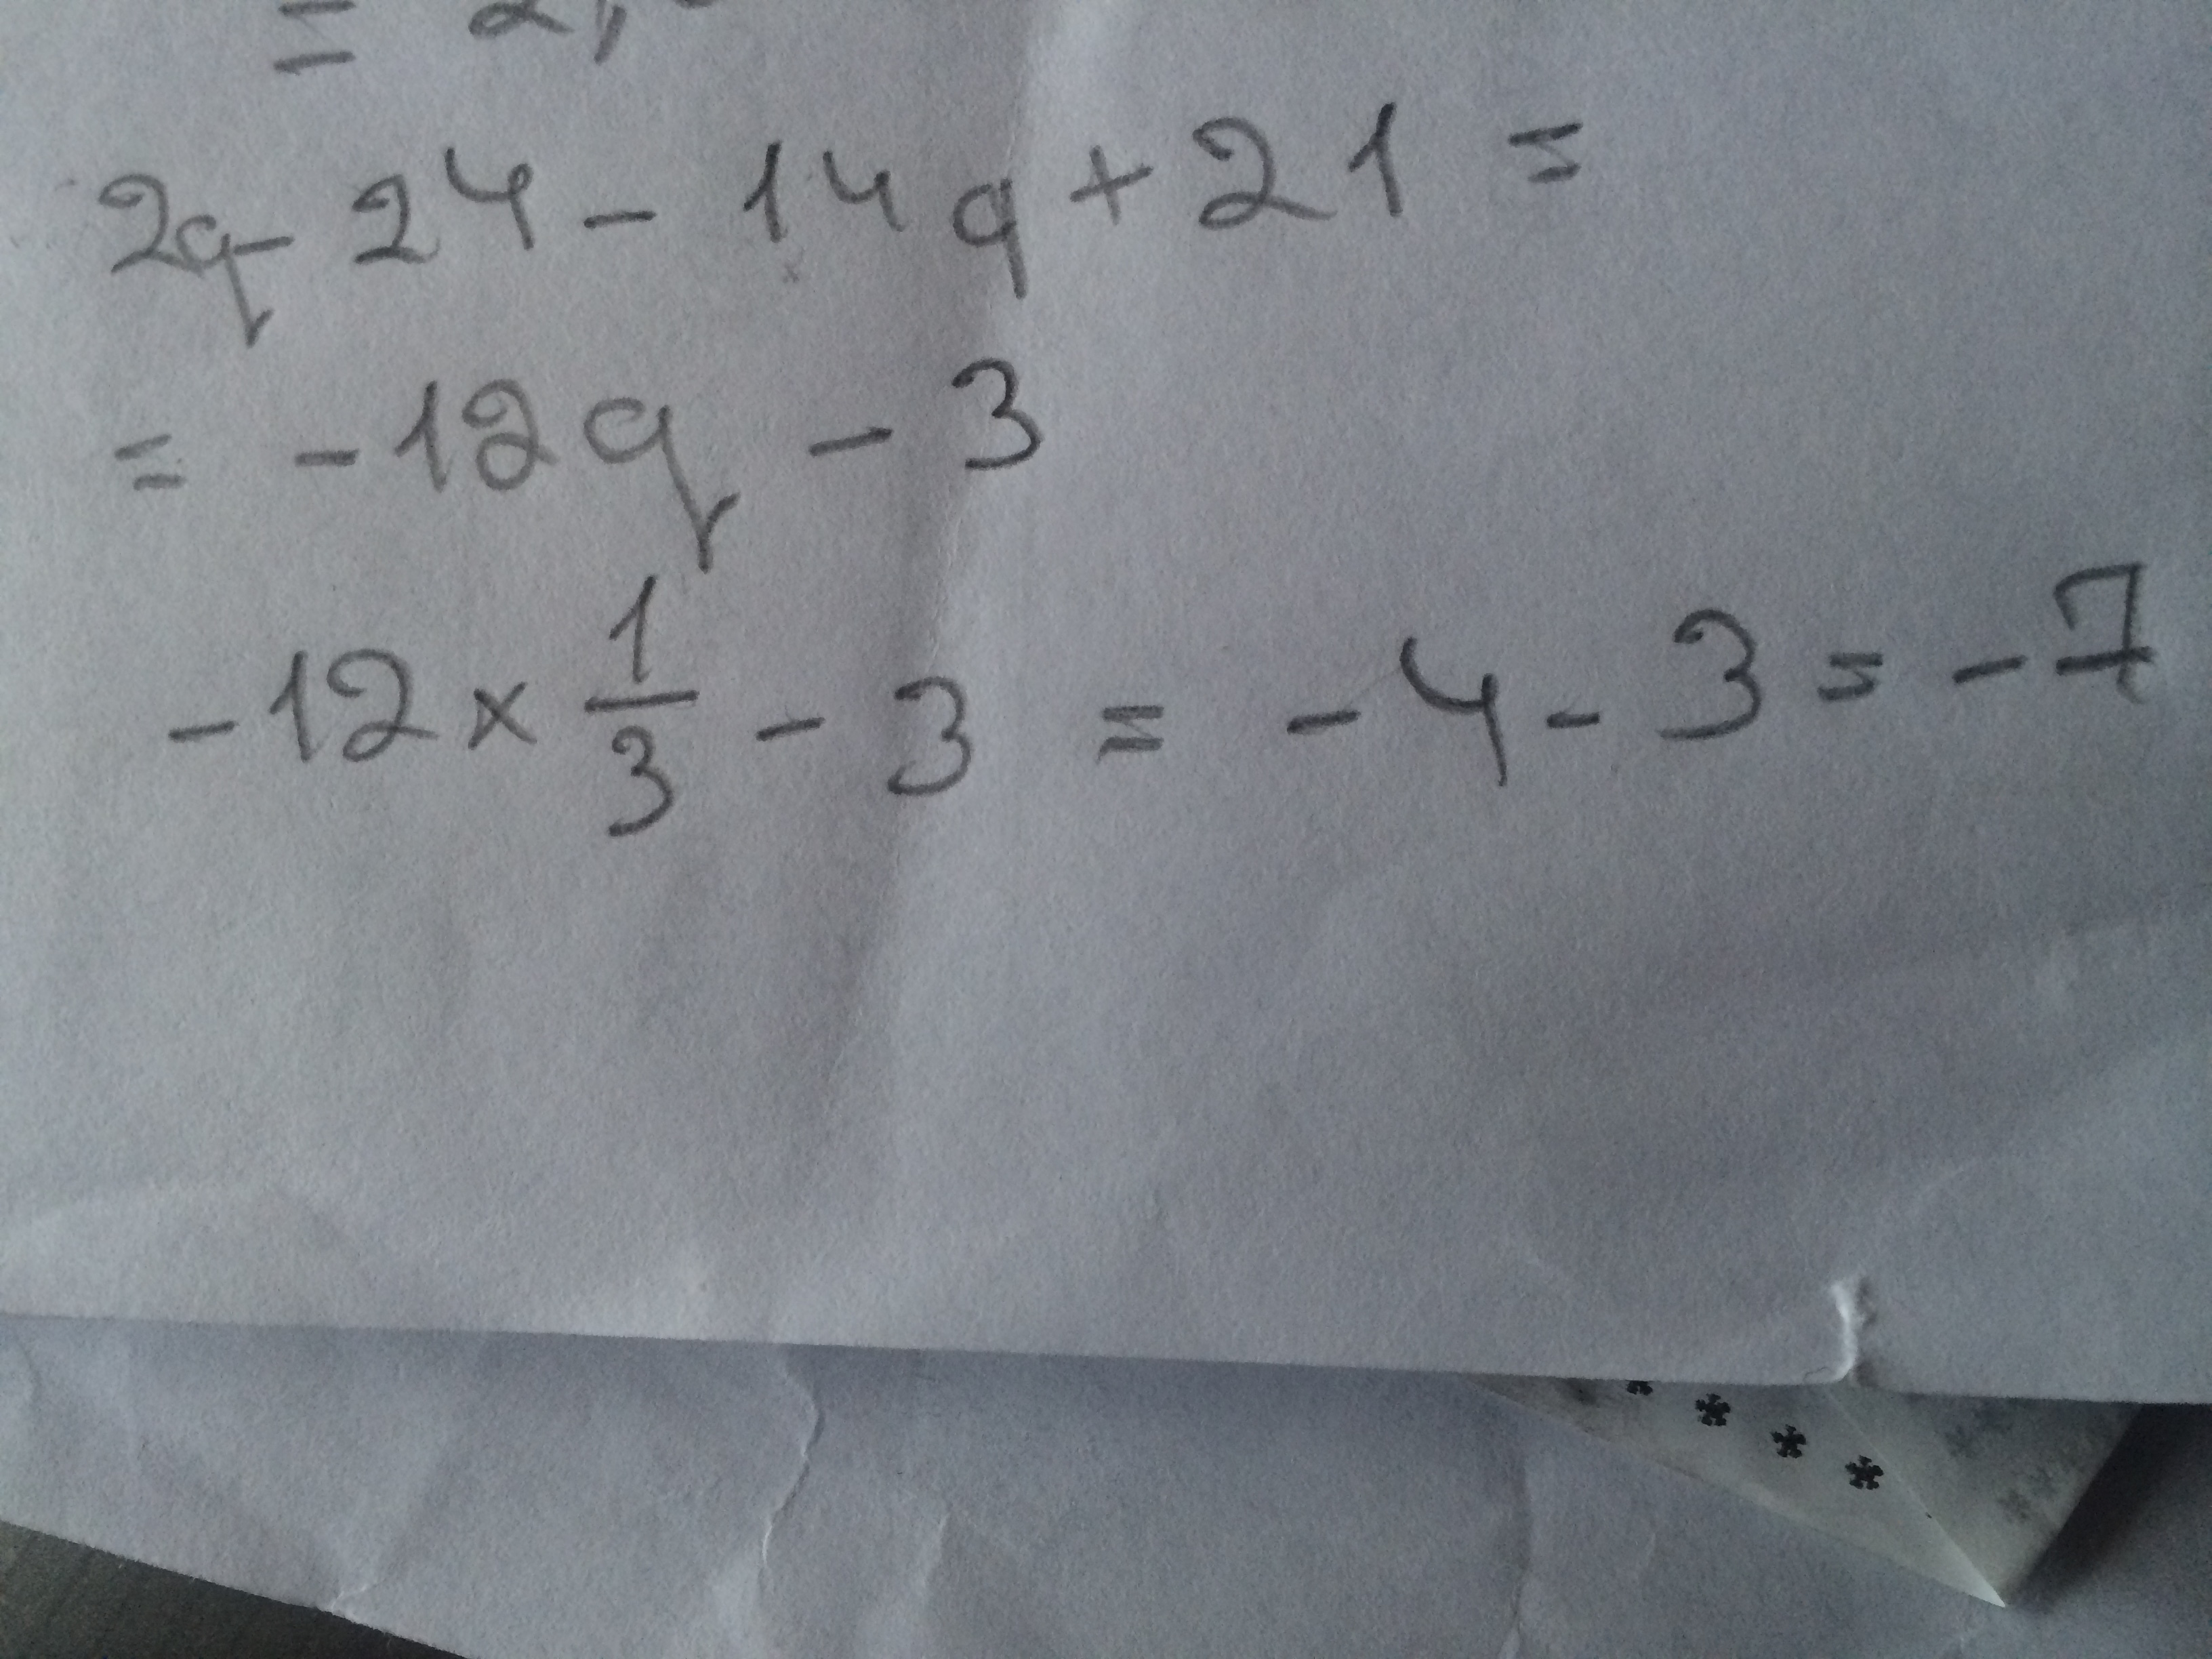 = 2,
2q - 24 - 14q + 21 =
= -12q - 3
-12 × 1/3 - 3 = -4 - 3 = -7